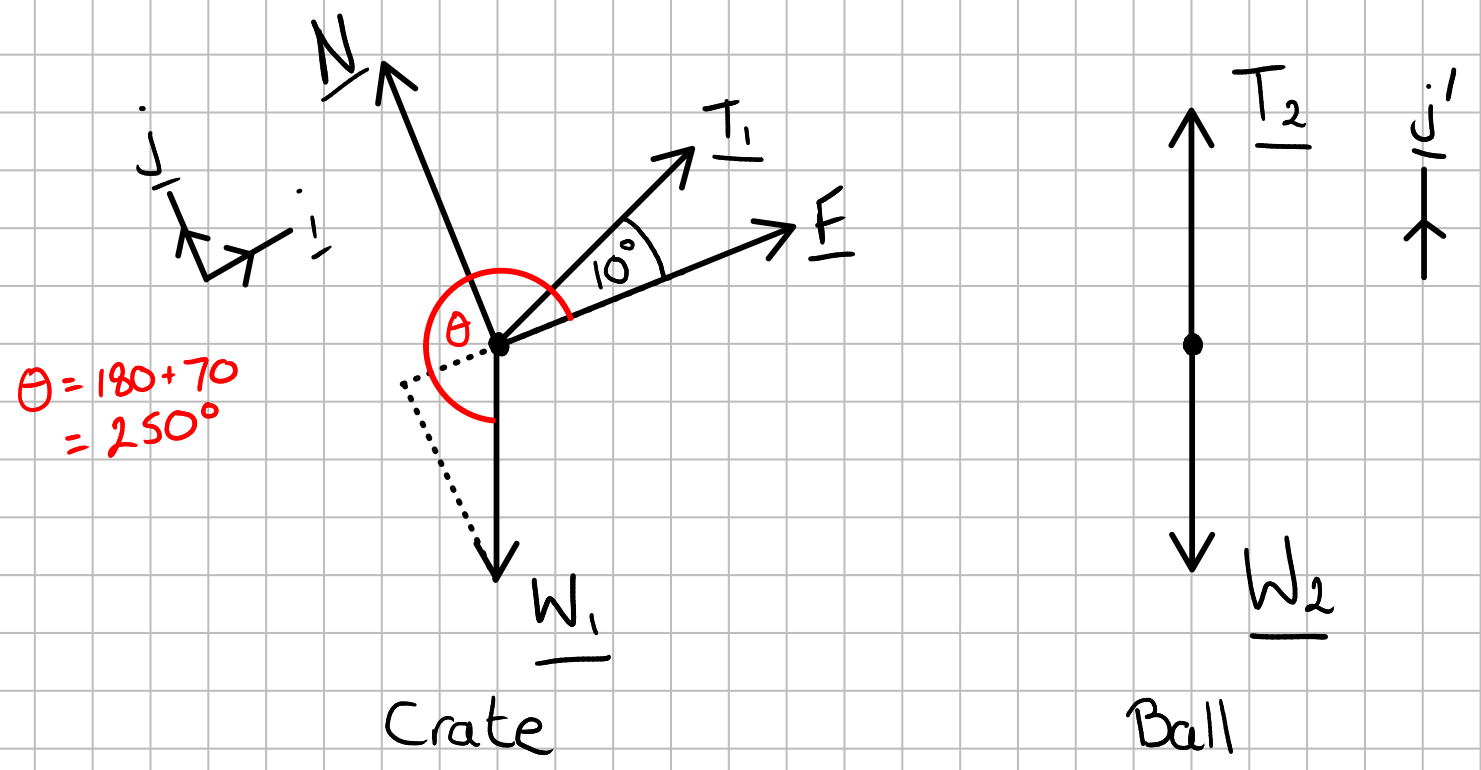 N
j
i
T₁
F
10°
θ
θ = 180 + 70
= 250°
W₁
Crate
T₂
j'
W₂
Ball